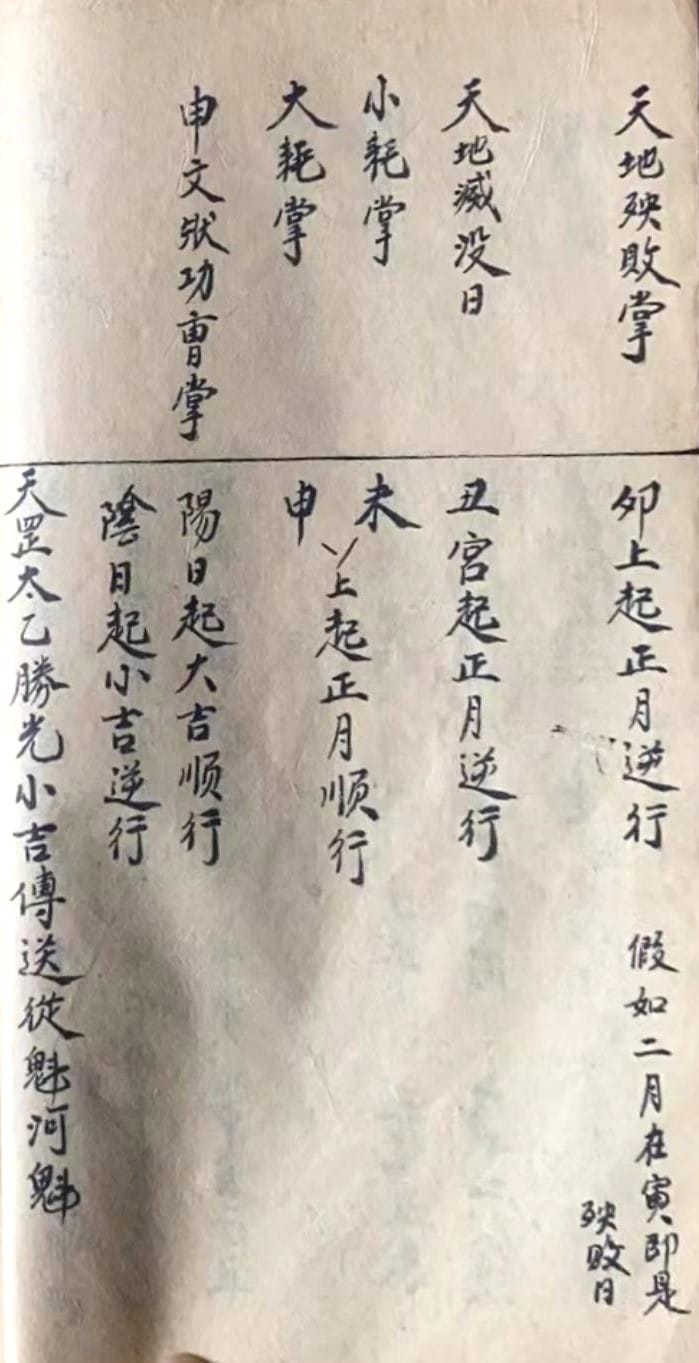 天地殃敗掌
卯上起正月逆行
假如二月在寅即是
殃敗日
天地滅没日
丑宮起正月逆行
小耗掌
大耗掌
未
申
丷上起正月順行
申文狀功曹掌
陽日起大吉順行
陰日起小吉逆行
天罡太乙勝光小吉傳送從魁河魁